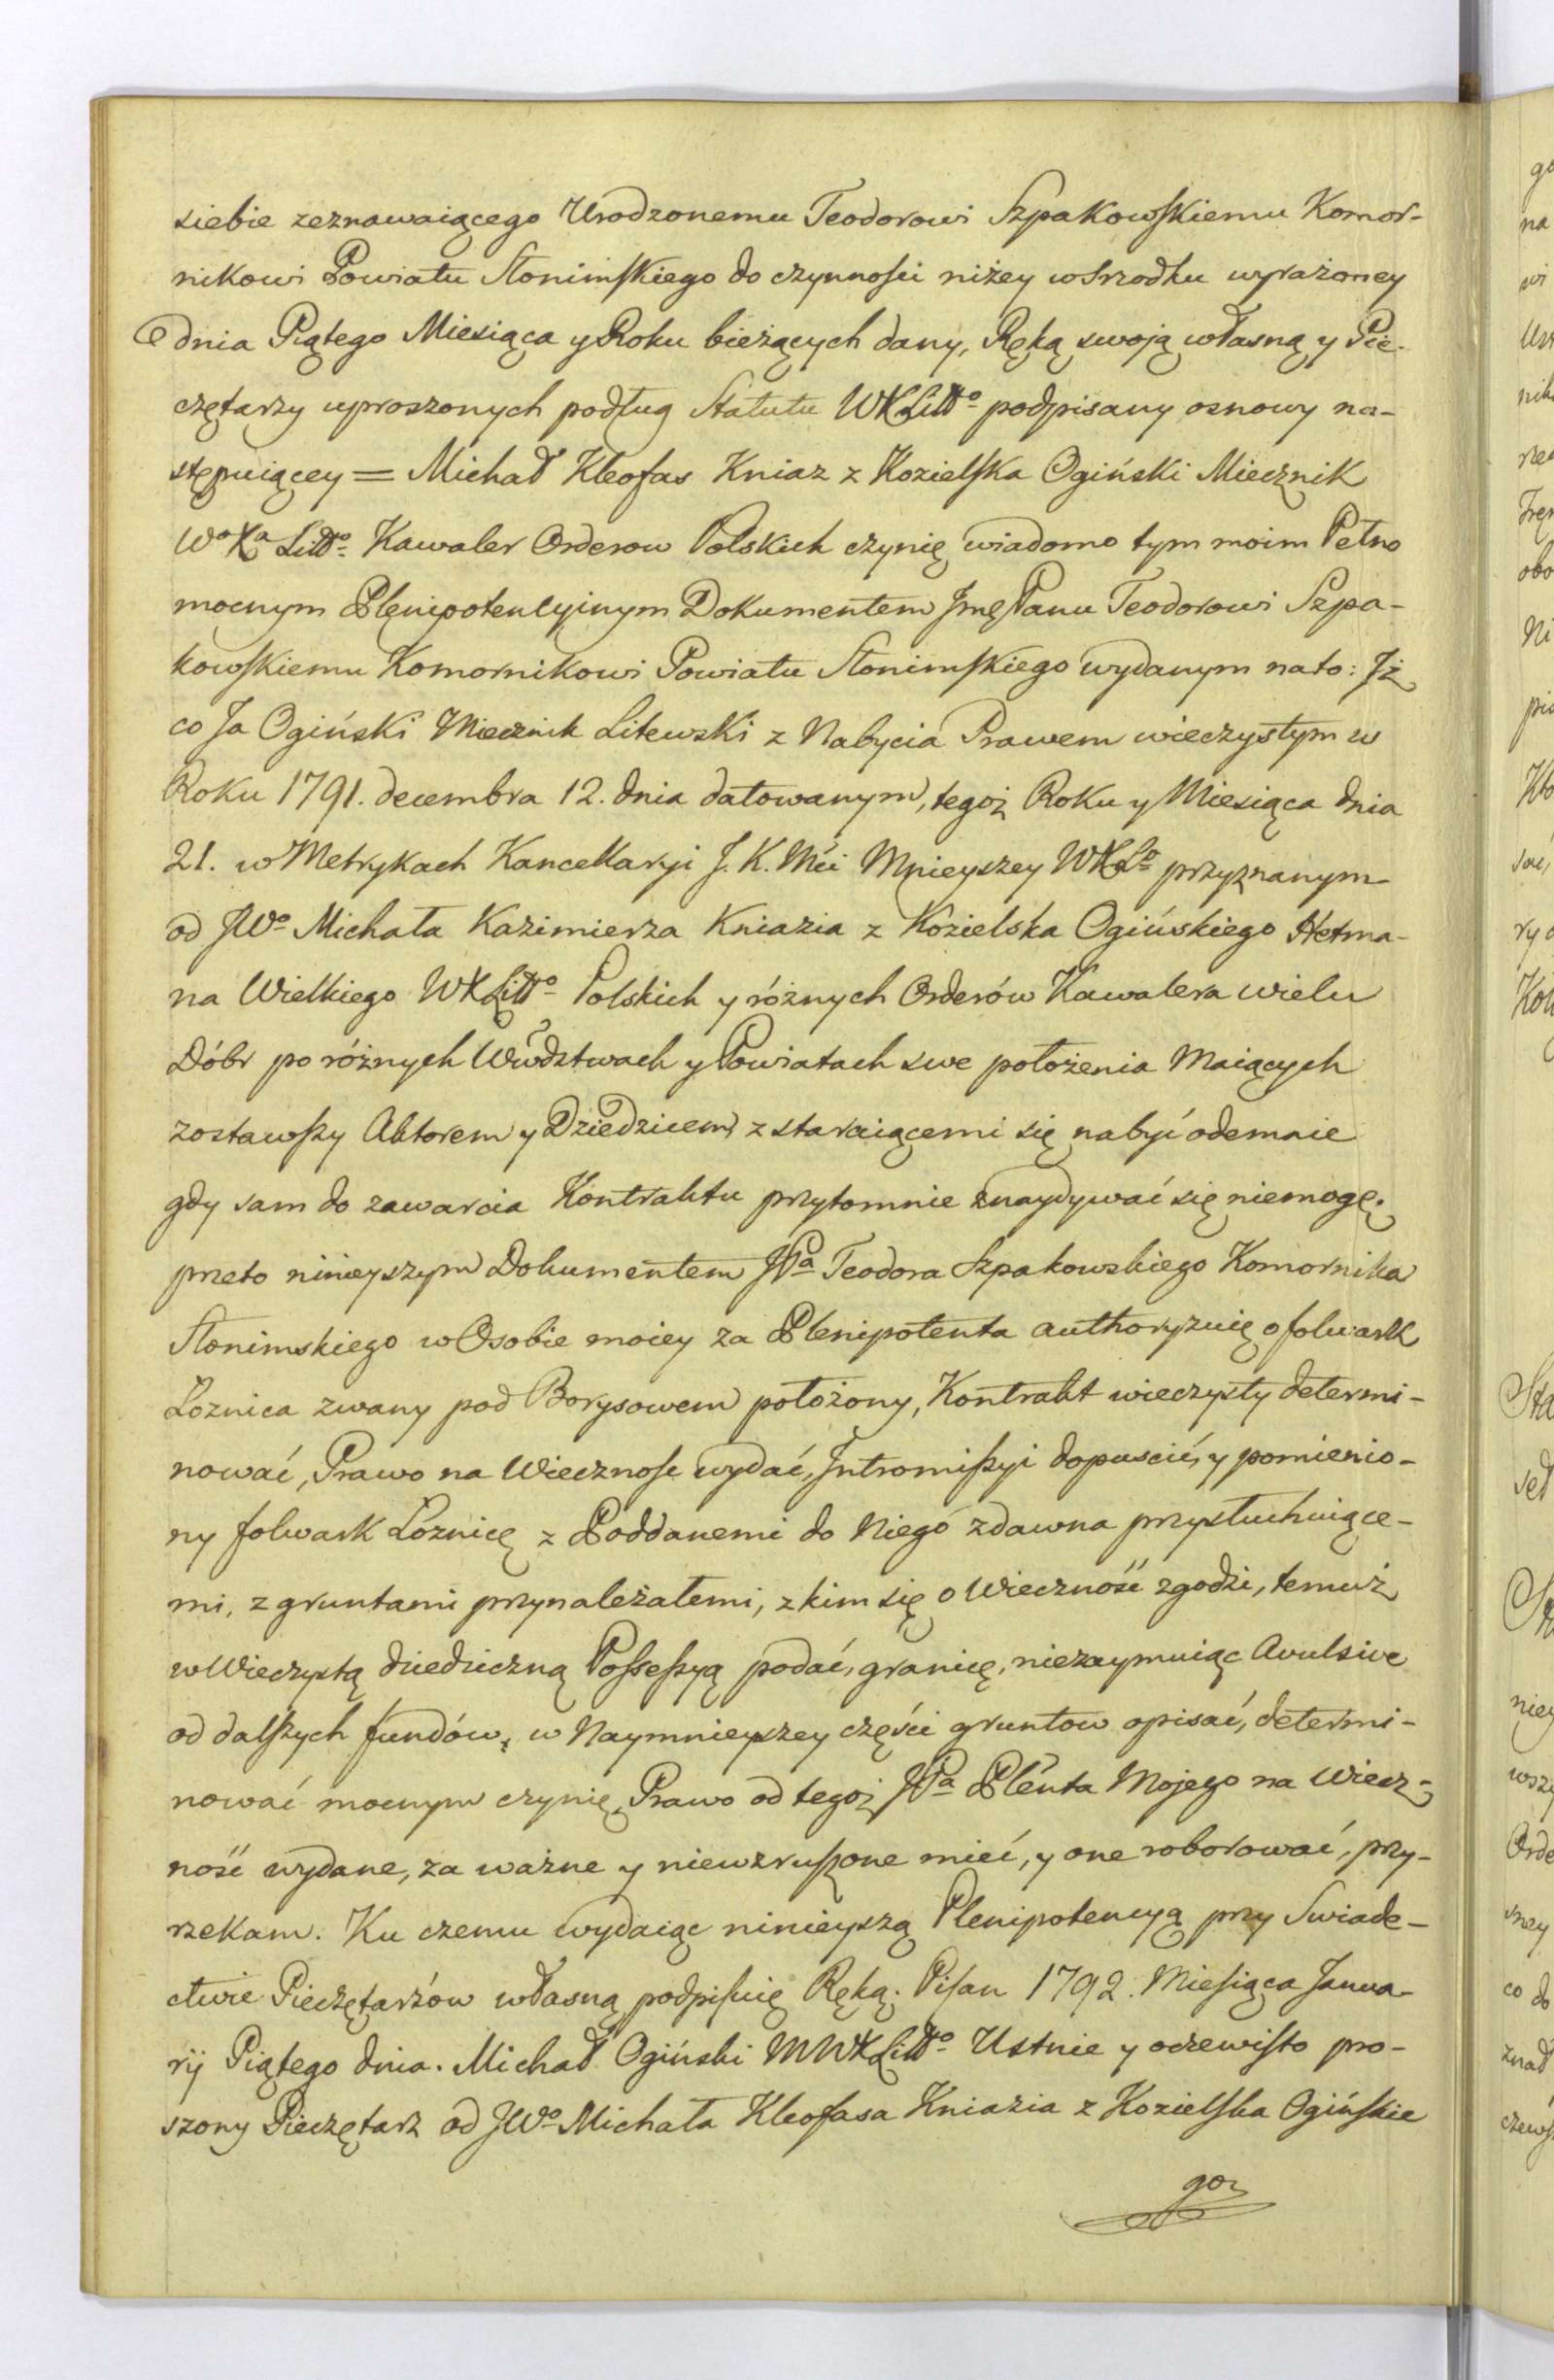 siebie zeznawaiącego Urodzonemu Teodorowi Szpakowskiemu Komor-
nikowi Powiatu Słonimskiego do czynności niżey w srzodku wyrażoney
dnia Piątego Miesiąca y Roku bieżących dany, Ręką swoją własną y Pie-
czętarzy uproszonych podług Statutu WXLitto podpisany osnowy na-
stępuiącey = Michał Kleofas Kniaz z Kozielska Ogiński Miecznik
Wo Xa Litto Kawaler Orderow Polskich czynię wiadomo tym moim Pełno
mocnym Plenipotencyinym Dokumentem Jmę Panu Teodorowi Szpa-
kowskiemu Komornikowi Powiatu Słonimskiego wydanym na to: Jż
co Ja Ogiński Miecznik Litewski z Nabycia Prawem wieczystym w
Roku 1791. decembra 12. dnia datowanym, tegoż Roku y Miesiąca dnia
21. w Metrykach Kancellaryi J. K. Mći Mnieyszey WXLo przyznanym
od JWo Michała Kazimierza Kniazia z Kozielska Ogińskiego Hetma-
na Wielkiego WXLitto Polskich y różnych Orderów Kawalera wielu
Dóbr po różnych Wwdztwach y Powiatach swe położenia Maiących
zostawszy Aktorem y Dziedzicem, z staraiącemi się nabyć odemnie
gdy sam do zawarcia Kontraktu przytomnie znaydywać się niemogę.
przeto ninieyszym Dokumentem JPa Teodora Szpakowskiego Komornika
Słonimskiego w Osobie moiey za Plenipotenta authoryzuię o folwark
Loznica zwany pod Borysowem położony, Kontrakt wieczysty determi-
nować, Prawo na Wiecznosc wydać, Jntromissyi dopuscić, y pomienio-
ny folwark Łoznicę z Poddanemi do Niego zdawna przysłuchuiące-
mi, z gruntami przynależałemi, z kim się o Wieczność zgodzi, temuż
w Wieczystą dziedziczną Possessyą podać, granicę, niezaymuiąc Avulsive
od dalszych fundów, w Naymnieyszey części gruntow opisać, determi-
nować mocnym czynię, Prawo od tegoż JPa Plenta Mojego na Wiecz-
ność wydane, za ważne y niewzruszone mieć, y one roborować, przy-
rzekam. Ku czemu wydaiąc ninieyszą Plenipotencyą przy Swiade-
ctwie Pieczętarzów własną podpisuię Ręką. Pisan 1792. Miesiąca Janua-
rij Piątego dnia. Michał Ogiński MWXLitto Ustnie y oczewisto pro-
szony Pieczętarz od JWo Michała Kleofasa Kniazia z Kozielska Ogińskie
go